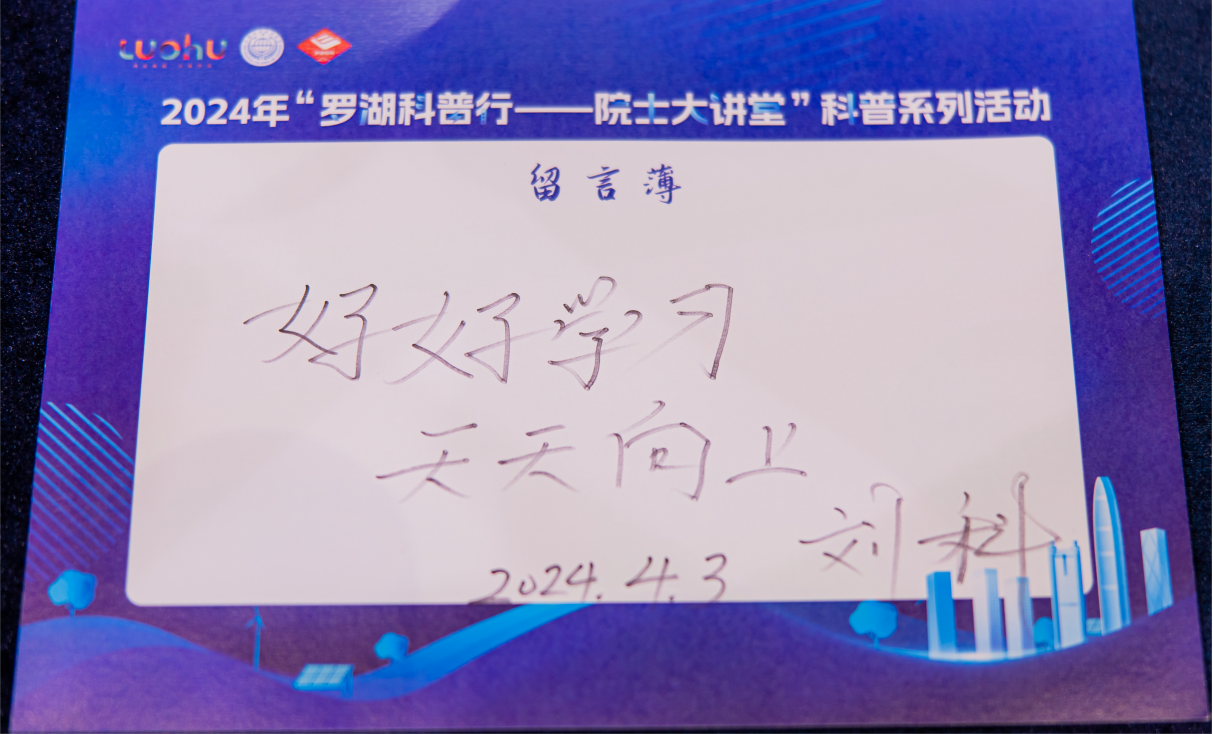 LUOHU
2024年“罗湖科普行——院士大讲堂”科普系列活动
留言薄
好好学习
天天向上
刘科
2024.4.3